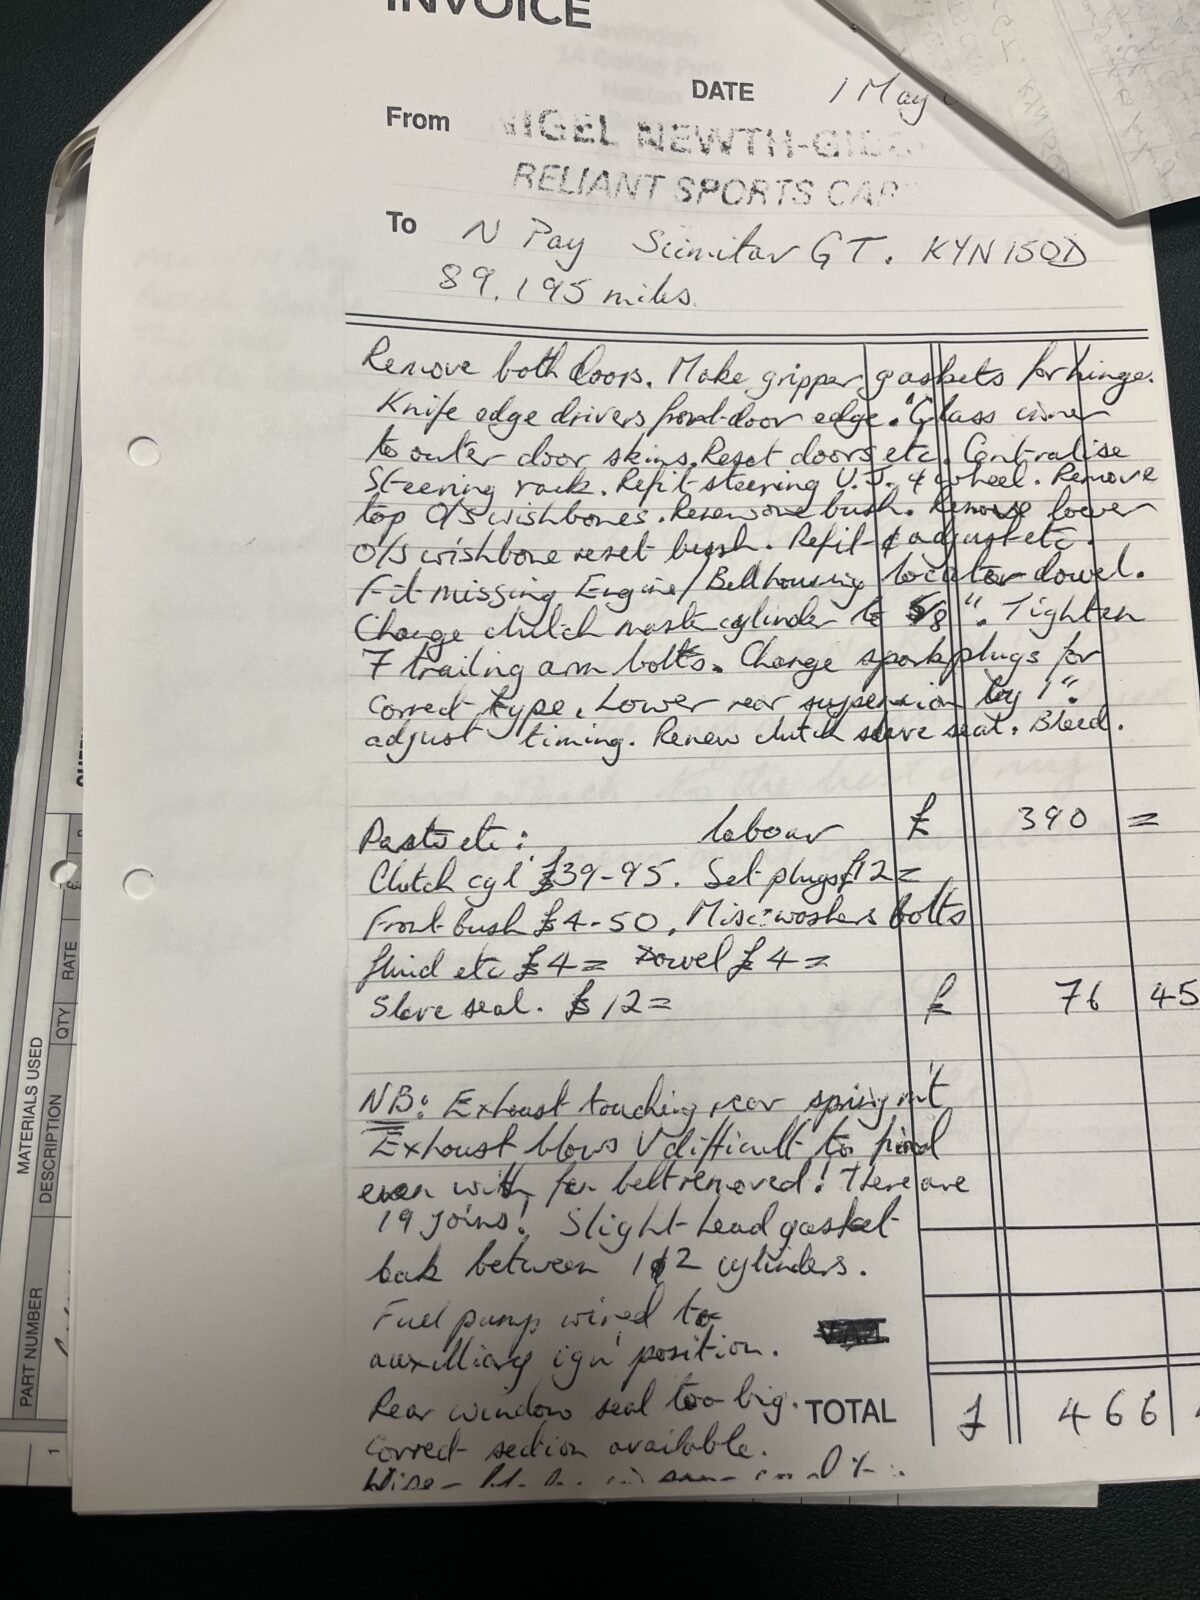 INVOICE
DATE 1 May
From NIGEL NEWTH-
RELIANT SPORTS CAR
To N Pay Scimitar GT. KYN 150D
89,195 miles.
Remove both doors. Make gripper gaskets for hinge.
Knife edge drivers front door edge. Glass inner
to outer door skins. Reset doors etc. Centralise
Steering rack. Refit steering U.J. & wheel. Remove
top O/S wishbones. Renew one bush. Remove lower
O/S wishbone reset bush. Refit & adjust etc.
Fit missing Engine/Bellhousing locator dowel.
Change clutch master cylinder to 5/8". Tighten
7 trailing arm bolts. Change spark plugs for
correct type. Lower rear suspension by 1".
adjust timing. Renew clutch slave seal. Bleed.
Parts etc: labour £ 390 =
Clutch cyl £39-95. Set plugs £12=
Front bush £4-50. Misc: washers bolts
fluid etc £4= Dowel £4=
Slave seal. £12= £ 76 45
NB: Exhaust touching rear spring m't
Exhaust blows V difficult to find
even with fan belt removed! There are
19 joins! Slight head gasket
leak between 1&2 cylinders.
Fuel pump wired to
auxilliary ign' position.
Rear window seal too big.
correct section available.
TOTAL £ 466
MATERIALS USED
PART NUMBER DESCRIPTION QTY RATE
1